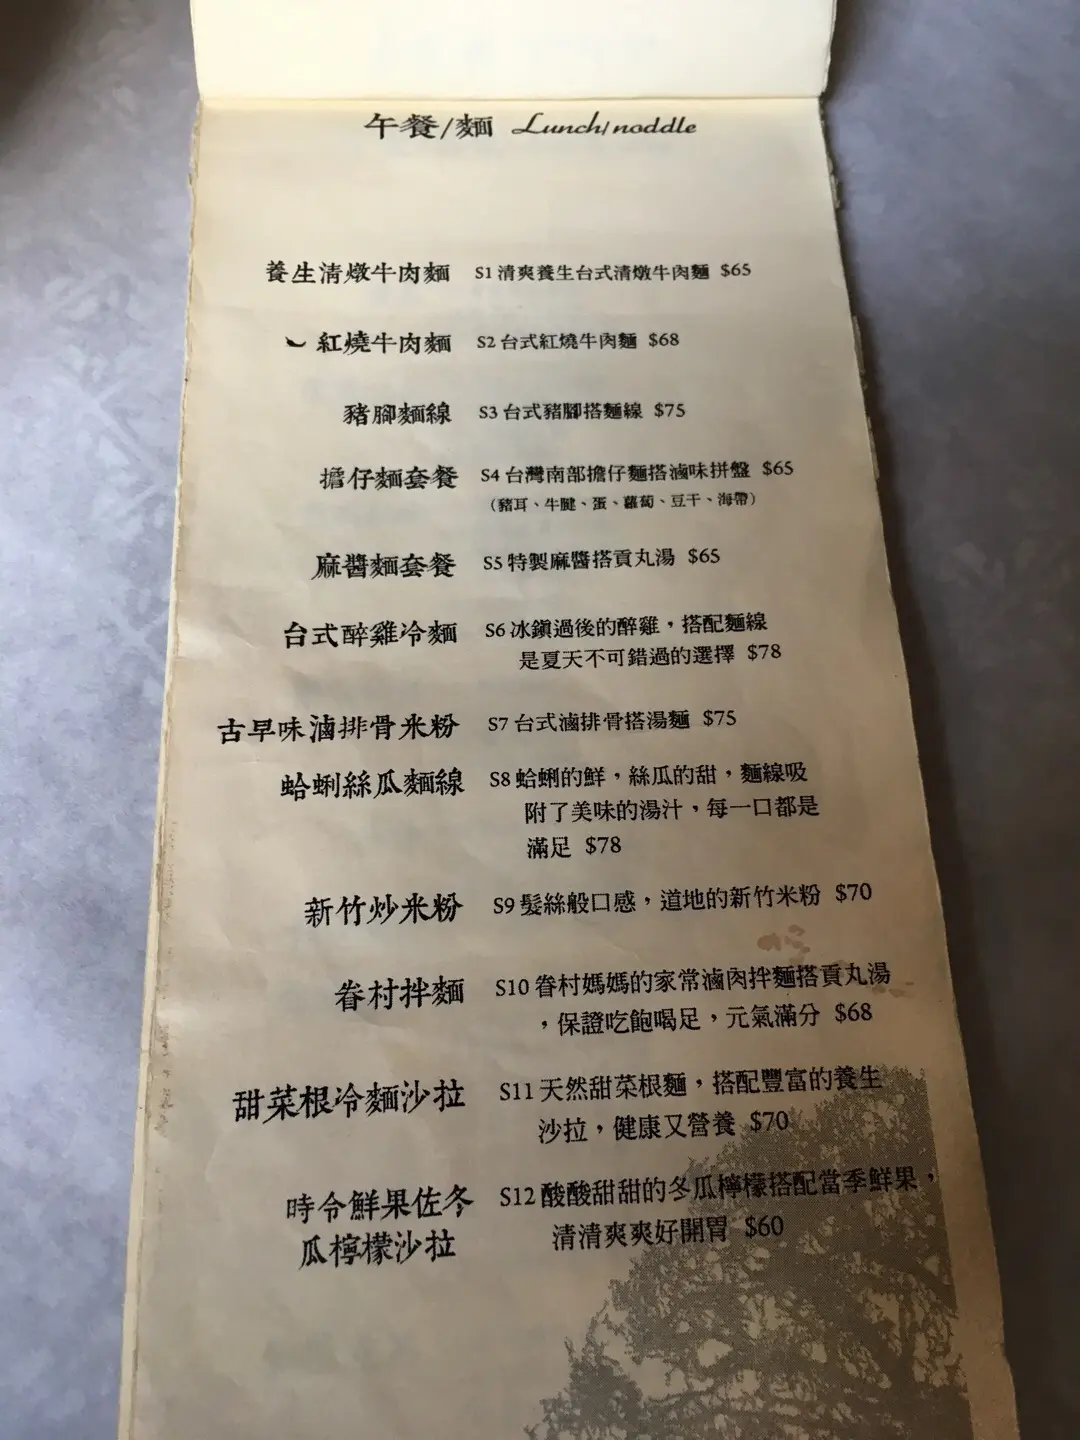 午餐/麵 Lunch/noddle
養生清燉牛肉麵 S1 清爽養生台式清燉牛肉麵 $65
紅燒牛肉麵 S2 台式紅燒牛肉麵 $68
豬腳麵線 S3 台式豬腳搭麵線 $75
擔仔麵套餐 S4 台灣南部擔仔麵搭滷味拼盤 $65
（豬耳、牛腱、蛋、蘿蔔、豆干、海帶）
麻醬麵套餐 S5 特製麻醬搭貢丸湯 $65
台式醉雞冷麵 S6 冰鎮過後的醉雞，搭配麵線
是夏天不可錯過的選擇 $78
古早味滷排骨米粉 S7 台式滷排骨搭湯麵 $75
蛤蜊絲瓜麵線 S8 蛤蜊的鮮，絲瓜的甜，麵線吸
附了美味的湯汁，每一口都是
滿足 $78
新竹炒米粉 S9 髮絲般口感，道地的新竹米粉 $70
眷村拌麵 S10 眷村媽媽的家常滷肉拌麵搭貢丸湯
，保證吃飽喝足，元氣滿分 $68
甜菜根冷麵沙拉 S11 天然甜菜根麵，搭配豐富的養生
沙拉，健康又營養 $70
時令鮮果佐冬 S12 酸酸甜甜的冬瓜檸檬搭配當季鮮果，
瓜檸檬沙拉 清清爽爽好開胃 $60